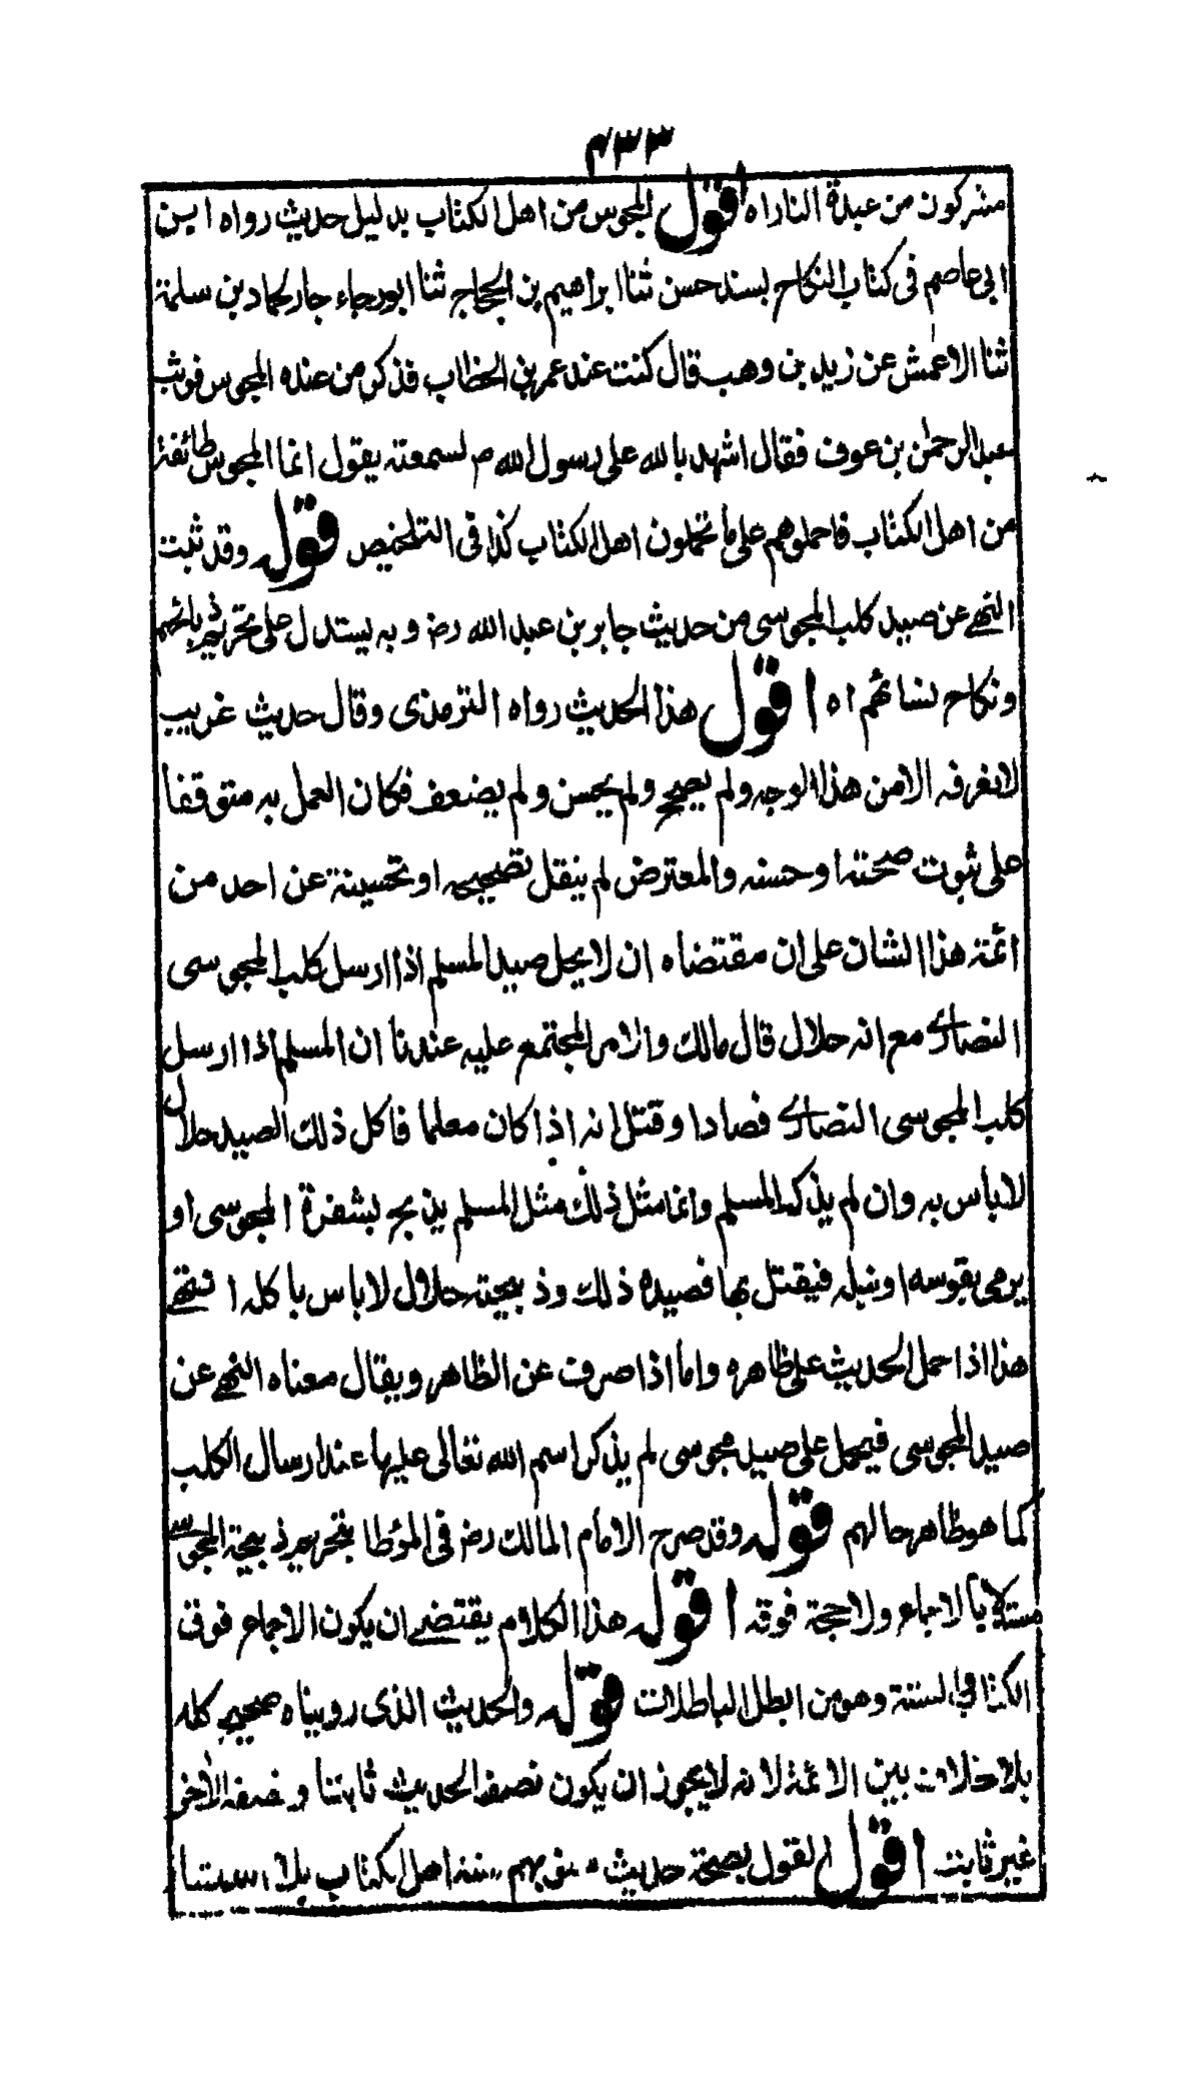 ٤٣٣
مشركون من عبدة النار اه اقول المجوس من اهل الكتاب بدليل حديث رواه ابن
ابى عاصم فى كتاب النكاح بسند حسن ثنا ابراهيم بن الحجاج ثنا ابورجاء جار لحماد بن سلمة
ثنا الاعمش عن زيد بن وهب قال كنت عند عمر بن الخطاب فذكر من عنده المجوس فوثب
عبد الرحمٰن بن عوف فقال اشهد بالله على رسول الله ص لسمعته يقول انما المجوس طائفة
من اهل الكتاب فاحملوهم على ما تحملون اهل الكتاب كذا فى التلخيص قوله وقد ثبت
النهے عن صيد كلب المجوسى من حديث جابر بن عبد الله رض وبه يستدل على تحريم ذبائحهم
ونكاح نسائهم اه اقول هذا الحديث رواه الترمذى وقال حديث غريب
لا نعرفه الا من هذا الوجه ولم يصحح ولم يحسن ولم يضعف فكان العمل به متوقفا
على ثبوت صحته او حسنه والمعترض لم ينقل تصحيحه او تحسينه عن احد من
ائمة هذا الشان على ان مقتضاه ان لا يحل صيد المسلم اذا ارسل كلب المجوسى
الضارى مع انه حلال قال مالك والامر المجتمع عليه عندنا ان المسلم اذا ارسل
كلب المجوسى الضارى فصادا وقتل انه اذا كان معلما فاكل ذلك الصيد حلال
لا باس به وان لم يذكه المسلم وانما مثل ذلك مثل المسلم يذبح بشفرة المجوسى او
يرمى بقوسه او نبله فيقتل بها فصيده ذلك وذبيحته حلال لا باس باكله انتهے
هذا اذا حمل الحديث على ظاهره واما اذا صرف عن الظاهر ويقال معناه النهے عن
صيد المجوسى فيحمل على صيد مجوسى لم يذكر اسم الله تعالى عليها عند ارسال الكلب
كما هو ظاهر حالهم قوله وقد صرح الامام المالك رض فى المؤطا بتحريم ذبيحة المجوسى
مستدلا بالاجماع ولا حجة فوقه اقول هذا الكلام يقتضے ان يكون الاجماع فوق
الكتاب والسنة وهو من ابطل الباطلات قوله والحديث الذى رويناه صحيح كله
بلا خلاف بين الائمة لانه لا يجوز ان يكون نصف الحديث ثابتا ونصفه الآخر
غير ثابت اقول القول بصحة حديث سنوا بهم سنة اهل الكتاب بلا